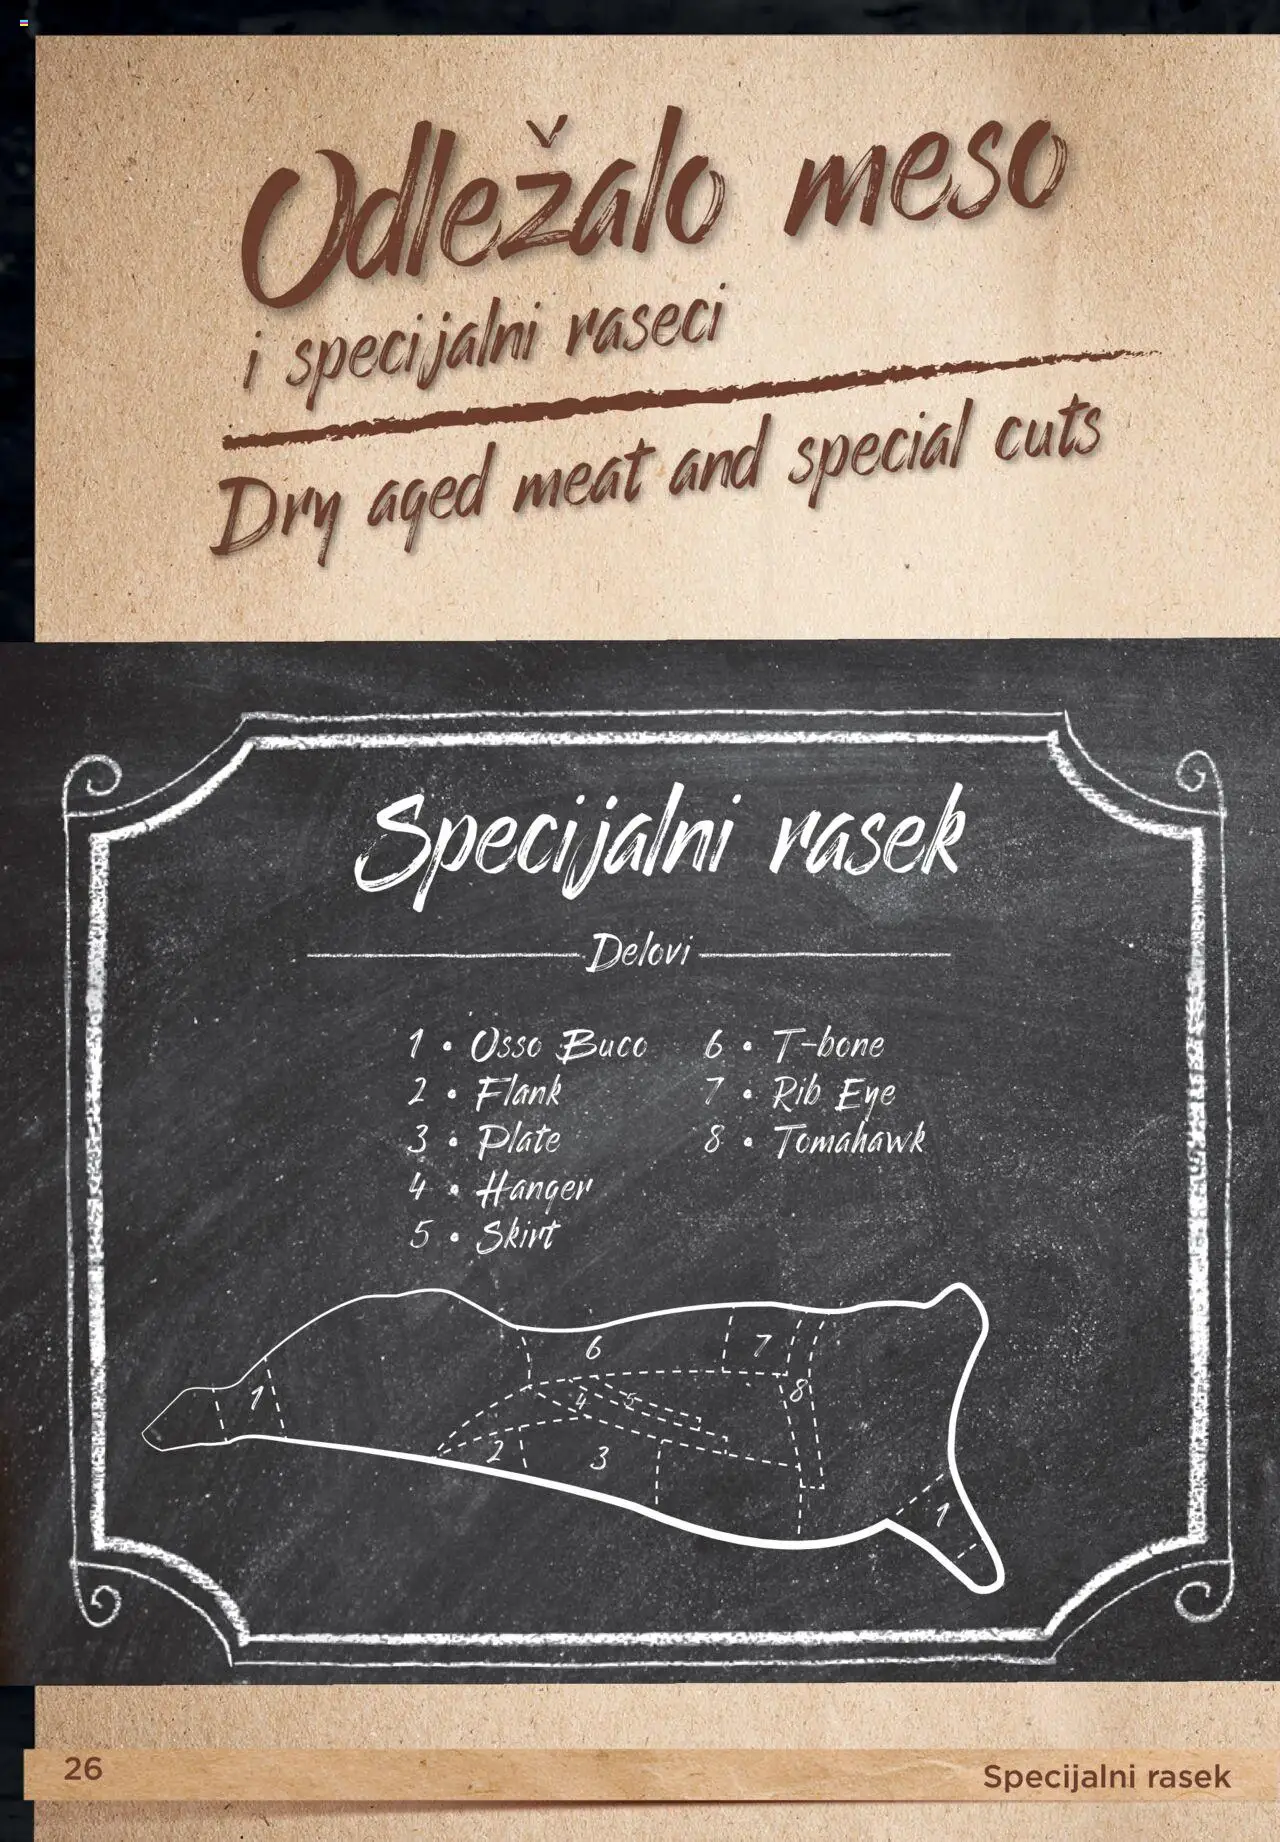 Odležalo meso
i specijalni raseci
Dry aged meat and special cuts
Specijalni rasek
Delovi
1 • Osso Buco
2 • Flank
3 • Plate
4 • Hanger
5 • Skirt
6 • T-bone
7 • Rib Eye
8 • Tomahawk
6
7
1
4
5
8
2
3
1
26
Specijalni rasek